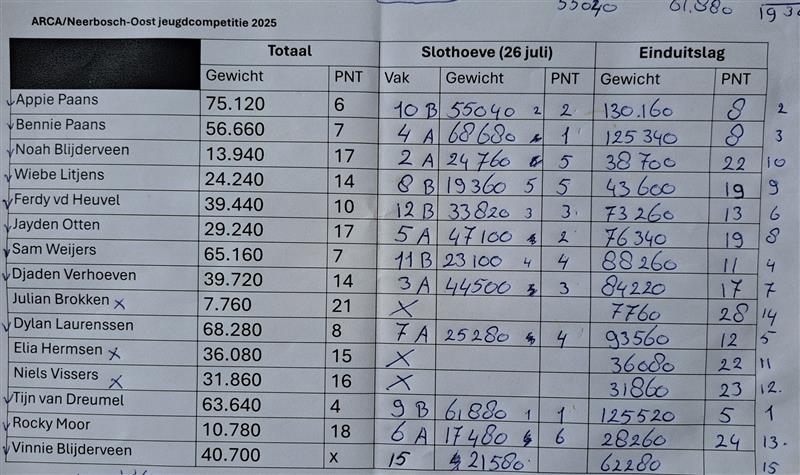 55040 61.880 193
ARCA/Neerbosch-Oost jeugdcompetitie 2025
Totaal Slothoeve (26 juli) Einduitslag
Gewicht PNT Vak Gewicht PNT Gewicht PNT
Appie Paans 75.120 6 10 B 55040 2 2 130.160 8 2
Bennie Paans 56.660 7 4 A 68680 1 125340 8 3
Noah Blijderveen 13.940 17 2 A 24760 5 38700 22 10
Wiebe Litjens 24.240 14 8 B 19360 5 5 43600 19 9
Ferdy vd Heuvel 39.440 10 12 B 33820 3 3. 73260 13 6
Jayden Otten 29.240 17 5 A 47100 2 76340 19 8
Sam Weijers 65.160 7 11 B 23100 4 4 88260 11 4
Djaden Verhoeven 39.720 14 3 A 44500 3 84220 17 7
Julian Brokken x 7.760 21 X 7760 28 14
Dylan Laurenssen 68.280 8 7 A 25280 4 93560 12 5
Elia Hermsen x 36.080 15 X 36080 22 11
Niels Vissers x 31.860 16 X 31860 23 12.
Tijn van Dreumel 63.640 4 9 B 61.880 1 1 125520 5 1
Rocky Moor 10.780 18 6 A 17480 6 28260 24 13.
Vinnie Blijderveen 40.700 x 15 21580 62280 15